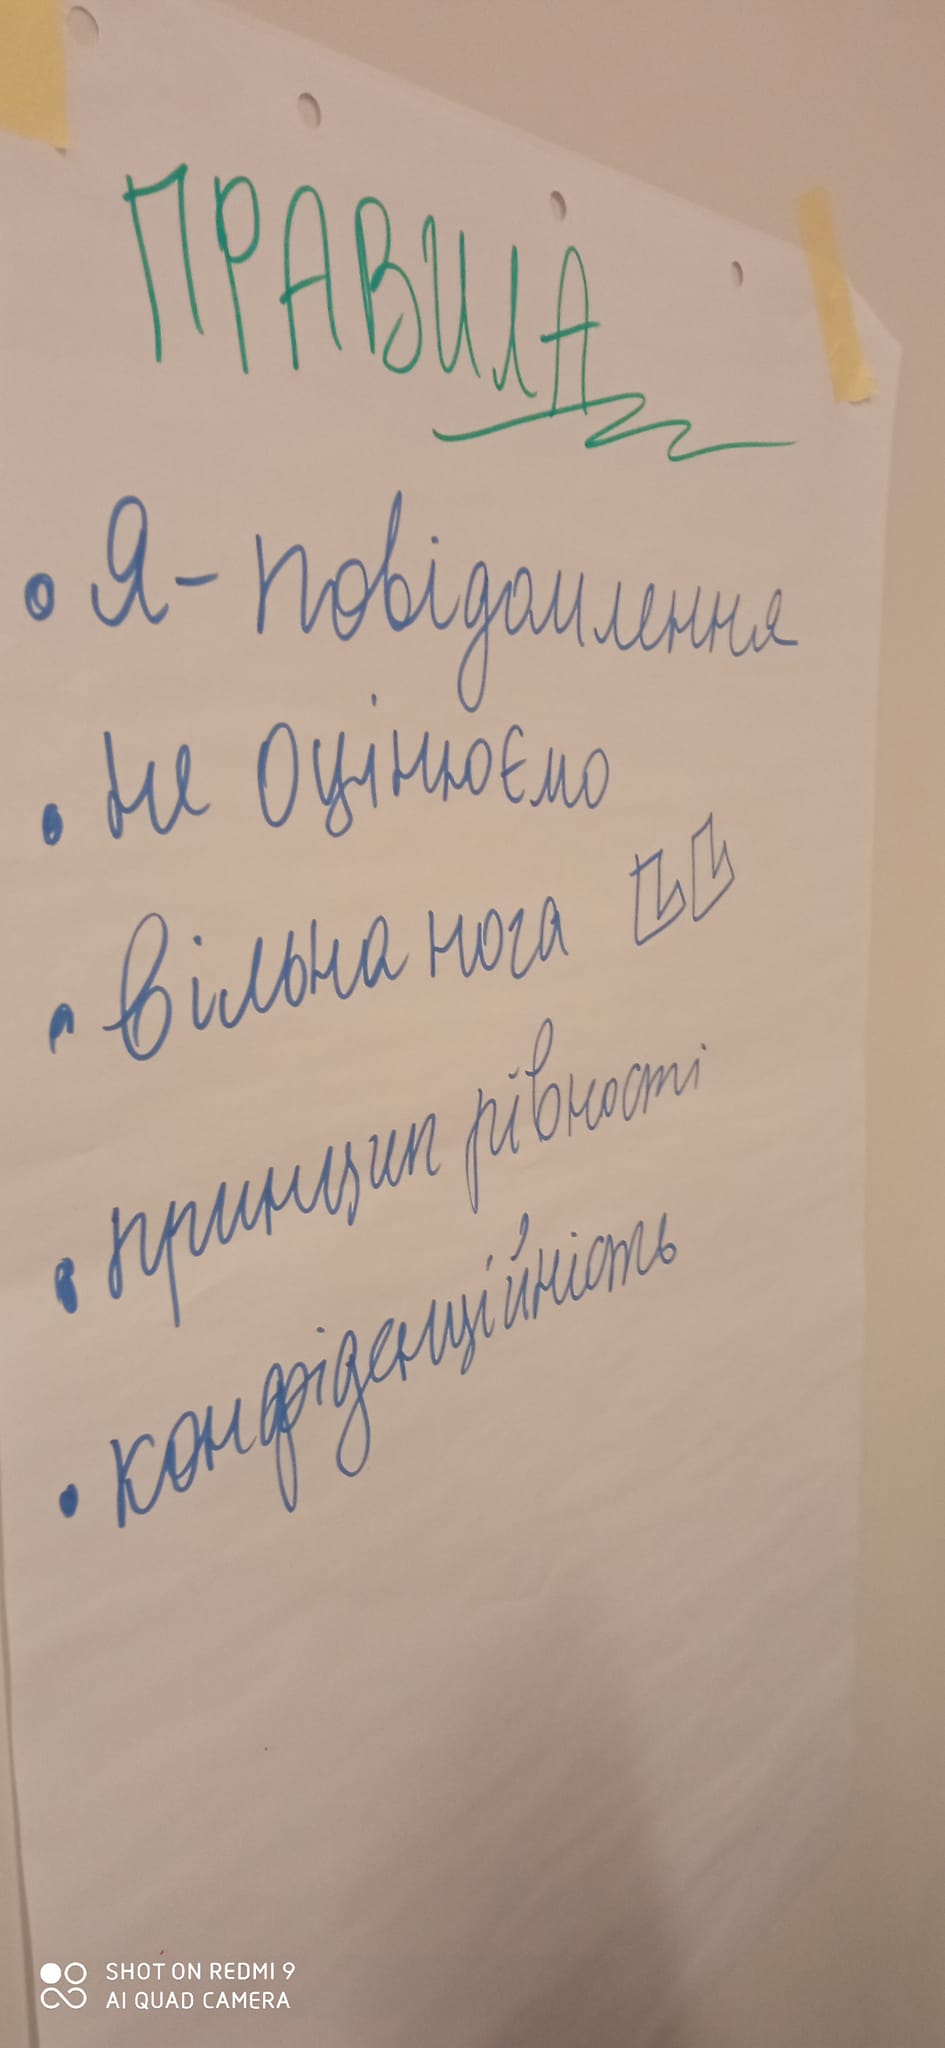 ПРАВИЛА
• Я - повідомлення
• не оцінюємо
• вільна нога
• принцип рівності
• конфіденційність
SHOT ON REDMI 9
AI QUAD CAMERA